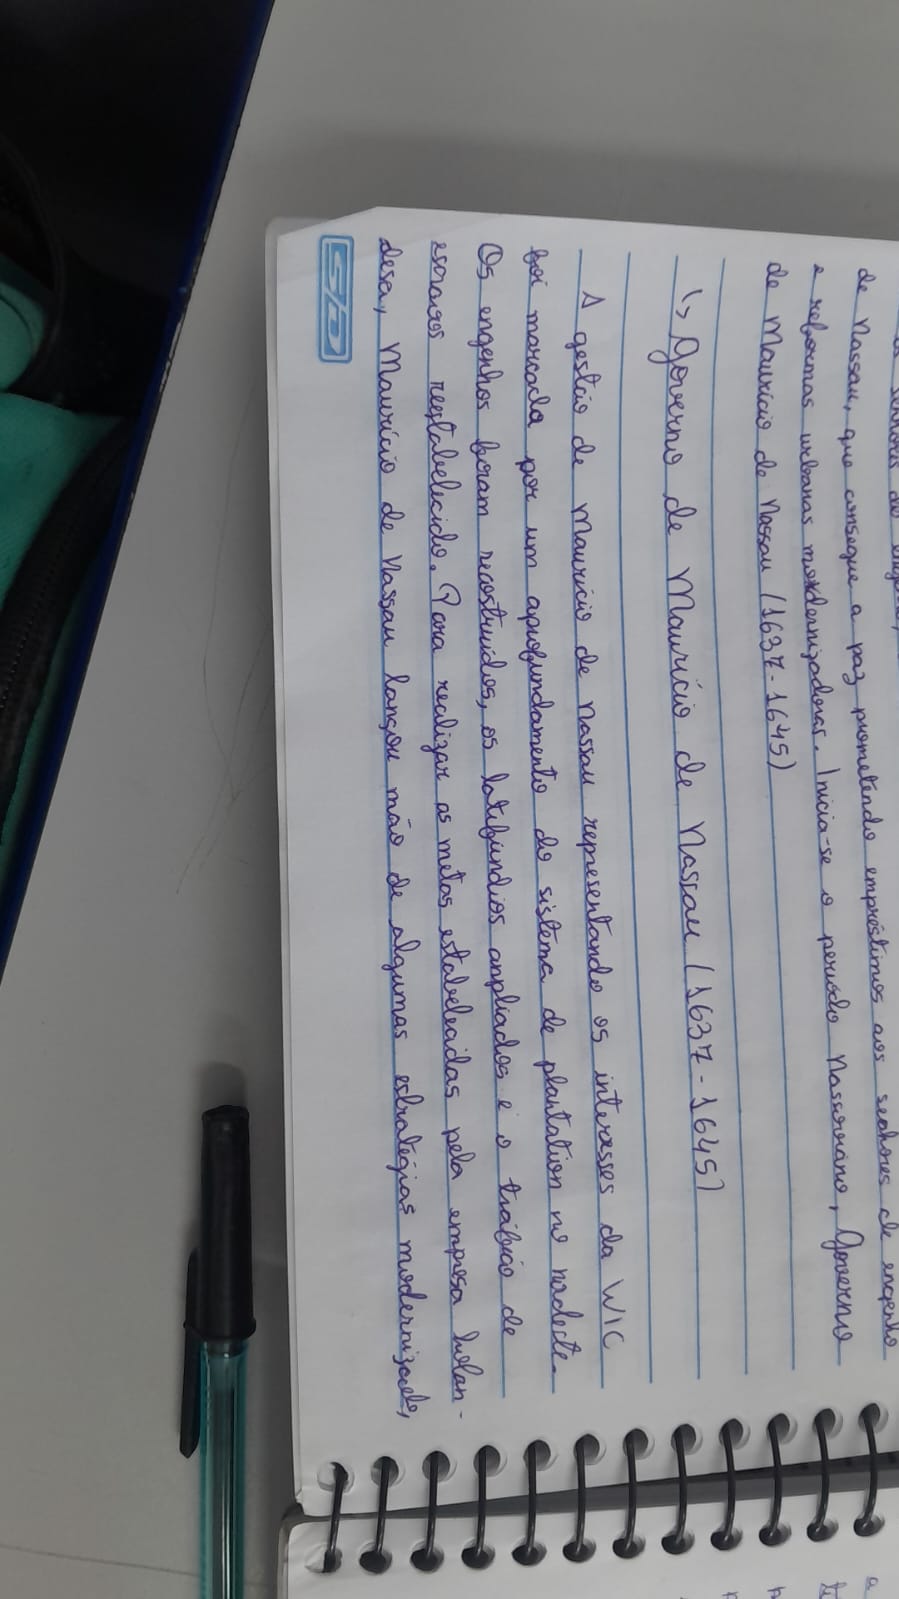 senhores de
de Nassau, que consegue a paz prometendo empréstimos aos senhores de engenho
e reformas urbanas moxdernizadoras. Inicia-se o período Nassoviano, Governo
de Maurício de Nassau (1637-1645)
↳ Governo de Maurício de Nassau (1637-1645)
A gestão de Maurício de Nassau representando os interesses da WIC
foi marcada por um aprofundamento do sistema de plantation no nordeste.
Os engenhos foram recostruídos, os latifúndios ampliados e o tráfico de
escravos restabelecido. Para realizar as metas estabelecidas pela empresa holan-
desa, Maurício de Nassau lançou mão de algumas estratégias
SD